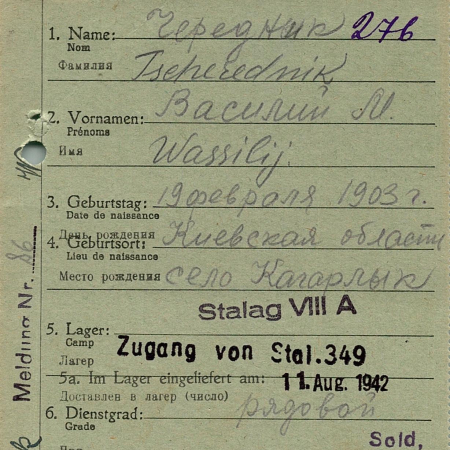 1. Name: Чередник 276
Nom
Фамилия Tscherednik
2. Vornamen: Василий М.
Prénoms
Имя Wassilij.
3. Geburtstag: 19 февраля 1903 г.
Date de naissance
День рождения
4. Geburtsort: Киевская области
Lieu de naissance
Место рождения село Кагарлык
Stalag VIII A
5. Lager:
Camp Zugang von Stal.349
Лагер
5a. Im Lager eingeliefert am: 11. Aug. 1942
Доставлен в лагер (число)
6. Dienstgrad: рядовой
Grade
Sold,
Meldung Nr. 86